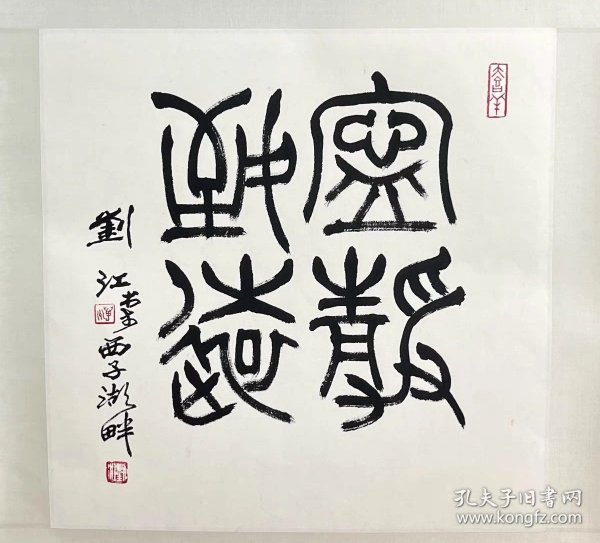 寧靜
致遠
劉江書于西子湖畔
孔夫子旧书网
www.kongfz.com